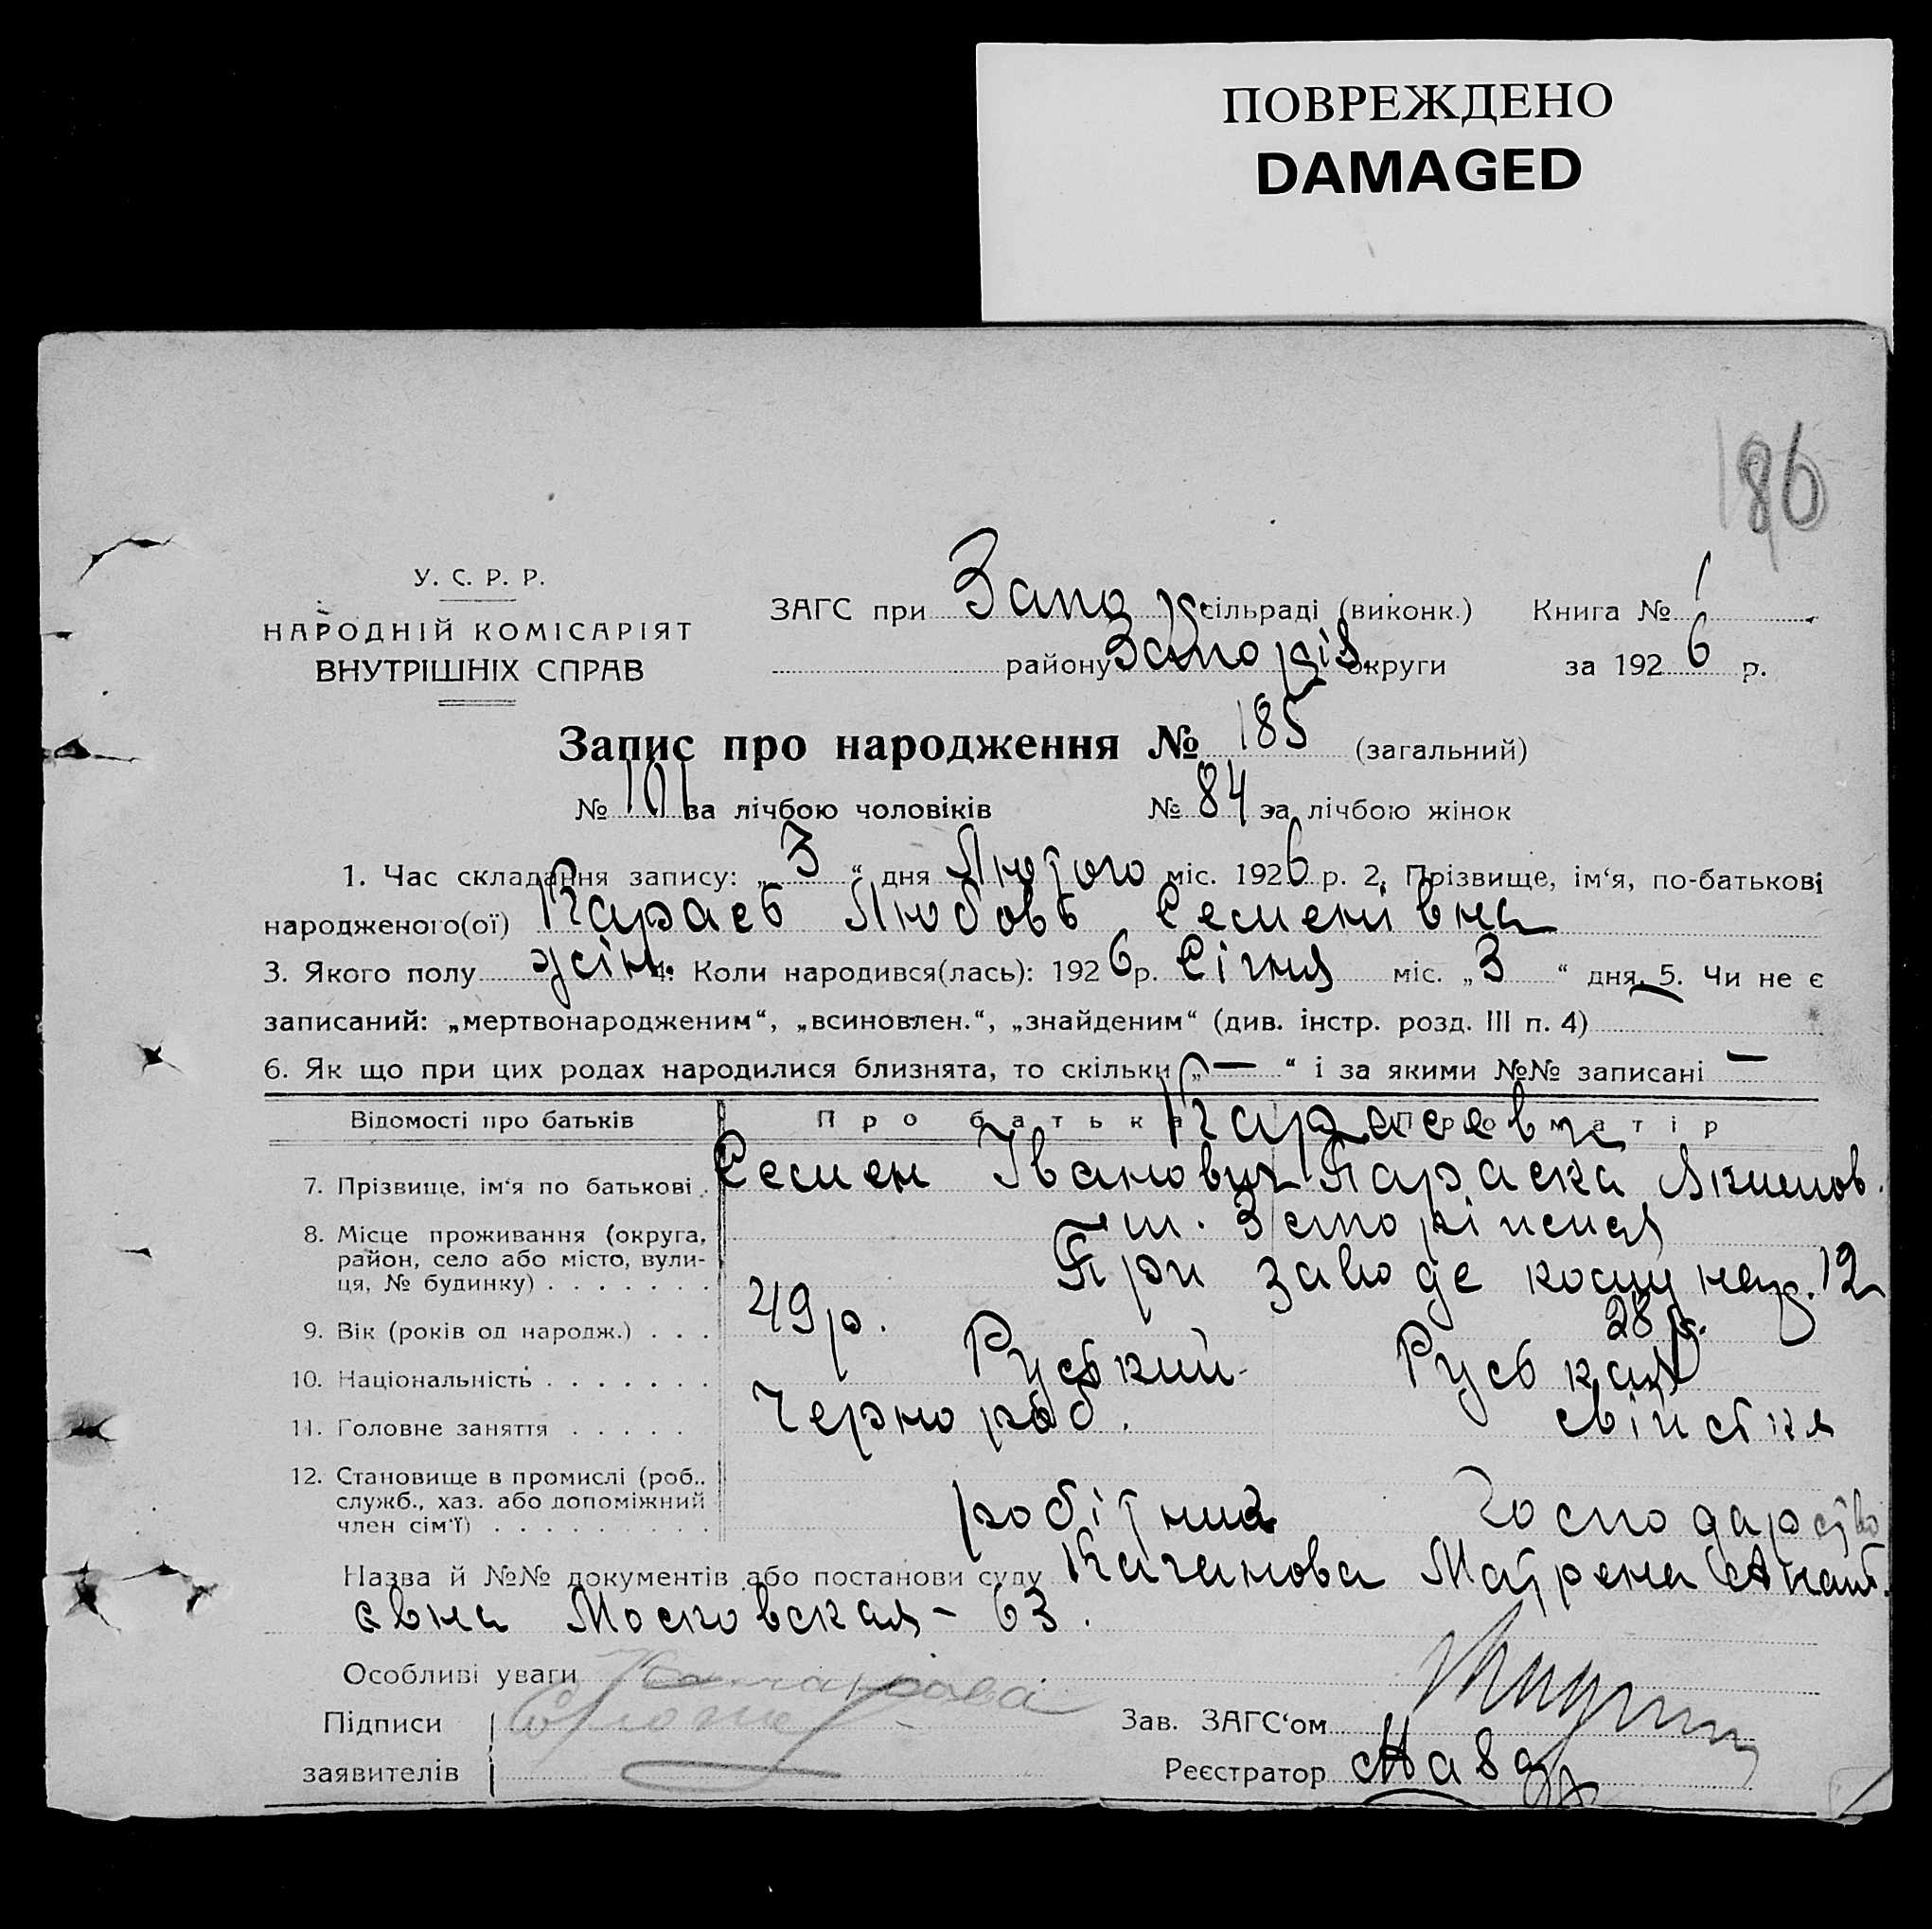 ПОВРЕЖДЕНО
DAMAGED
186
У. С. Р. Р.
НАРОДНІЙ КОМІСАРІЯТ
ВНУТРІШНІХ СПРАВ
ЗАГС при Запор. сільраді (виконк.) Книга № 1
району Запоріз. округи за 1926 р.
Запис про народження № 185 (загальний)
№ 101 за лічбою чоловіків № 84 за лічбою жінок
1. Час складання запису: „3“ дня Лютого міс. 1926 р. 2. Прізвище, ім‘я, по-батькові
народженого(ої) Караєв Любовь Семенівна
3. Якого полу жін. 4. Коли народився(лась): 1926 р. Січня міс. „3“ дня. 5. Чи не є
записаний: „мертвонародженим“, „всиновлен.“, „знайденим“ (див. інстр. розд. III п. 4)
6. Як що при цих родах народилися близнята, то скільки „—“ і за якими №№ записані —
Відомості про батьків Про батька Про матір
7. Прізвище, ім‘я по батькові Семен Іванович Параска Якимов.
8. Місце проживання (округа,
район, село або місто, вули-
ця, № будинку) При заводе комунар. 12
9. Вік (років од народж.) 49 р. 28 р.
10. Національність Руський Руськая
11. Головне заняття Чернораб. свійсткя
12. Становище в промислі (роб.,
служб., хаз. або допоміжний
член сім‘ї) робітник господарство
Назва й №№ документів або постанови суду Качанова Матрена
євна Московская - 63.
Особливі уваги
Підписи
заявителів
Зав. ЗАГС‘ом
Реєстратор